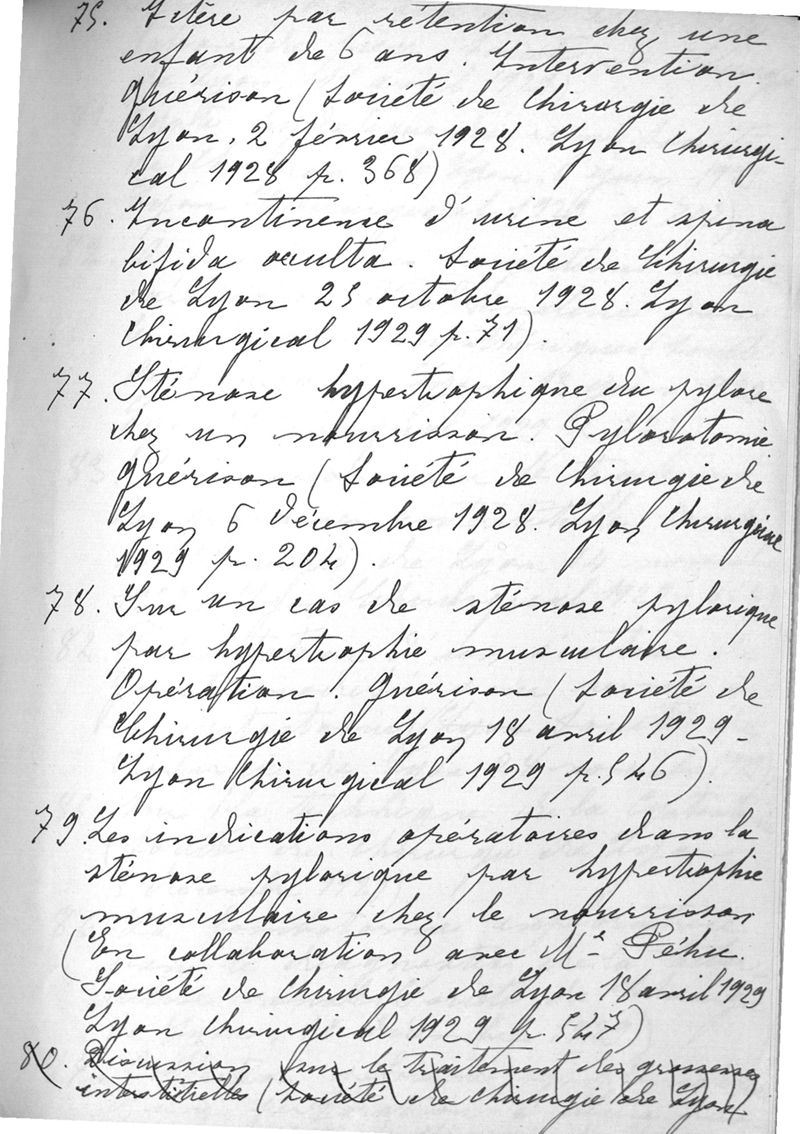 75. Ictère par rétention chez une
enfant de 6 ans. Intervention.
guérison (Société de Chirurgie de
Lyon. 2 février 1928. Lyon Chirurgi-
cal 1928 p. 368)
76. Incontinence d'urine et spina
bifida occulta. Société de Chirurgie
de Lyon 25 octobre 1928. Lyon
Chirurgical 1929 p. 71).
77. Sténose hypertrophique du pylore
chez un nourrisson. Pylorotomie.
guérison (Société de Chirurgie de
Lyon 6 Décembre 1928. Lyon Chirurgical
1929 p. 204).
78. Sur un cas de sténose pylorique
par hypertrophie musculaire.
Opération. guérison (Société de
Chirurgie de Lyon 18 avril 1929 -
Lyon Chirurgical 1929 p. 546).
79. Les indications opératoires dans la
sténose pylorique par hypertrophie
musculaire chez le nourrisson
(En collaboration avec Mr Péhu.
Société de Chirurgie de Lyon 18 avril 1929
Lyon Chirurgical 1929 p. 547)
80. Discussion sur le traitement des grossesses
interstitielles (Société de Chirurgie de Lyon